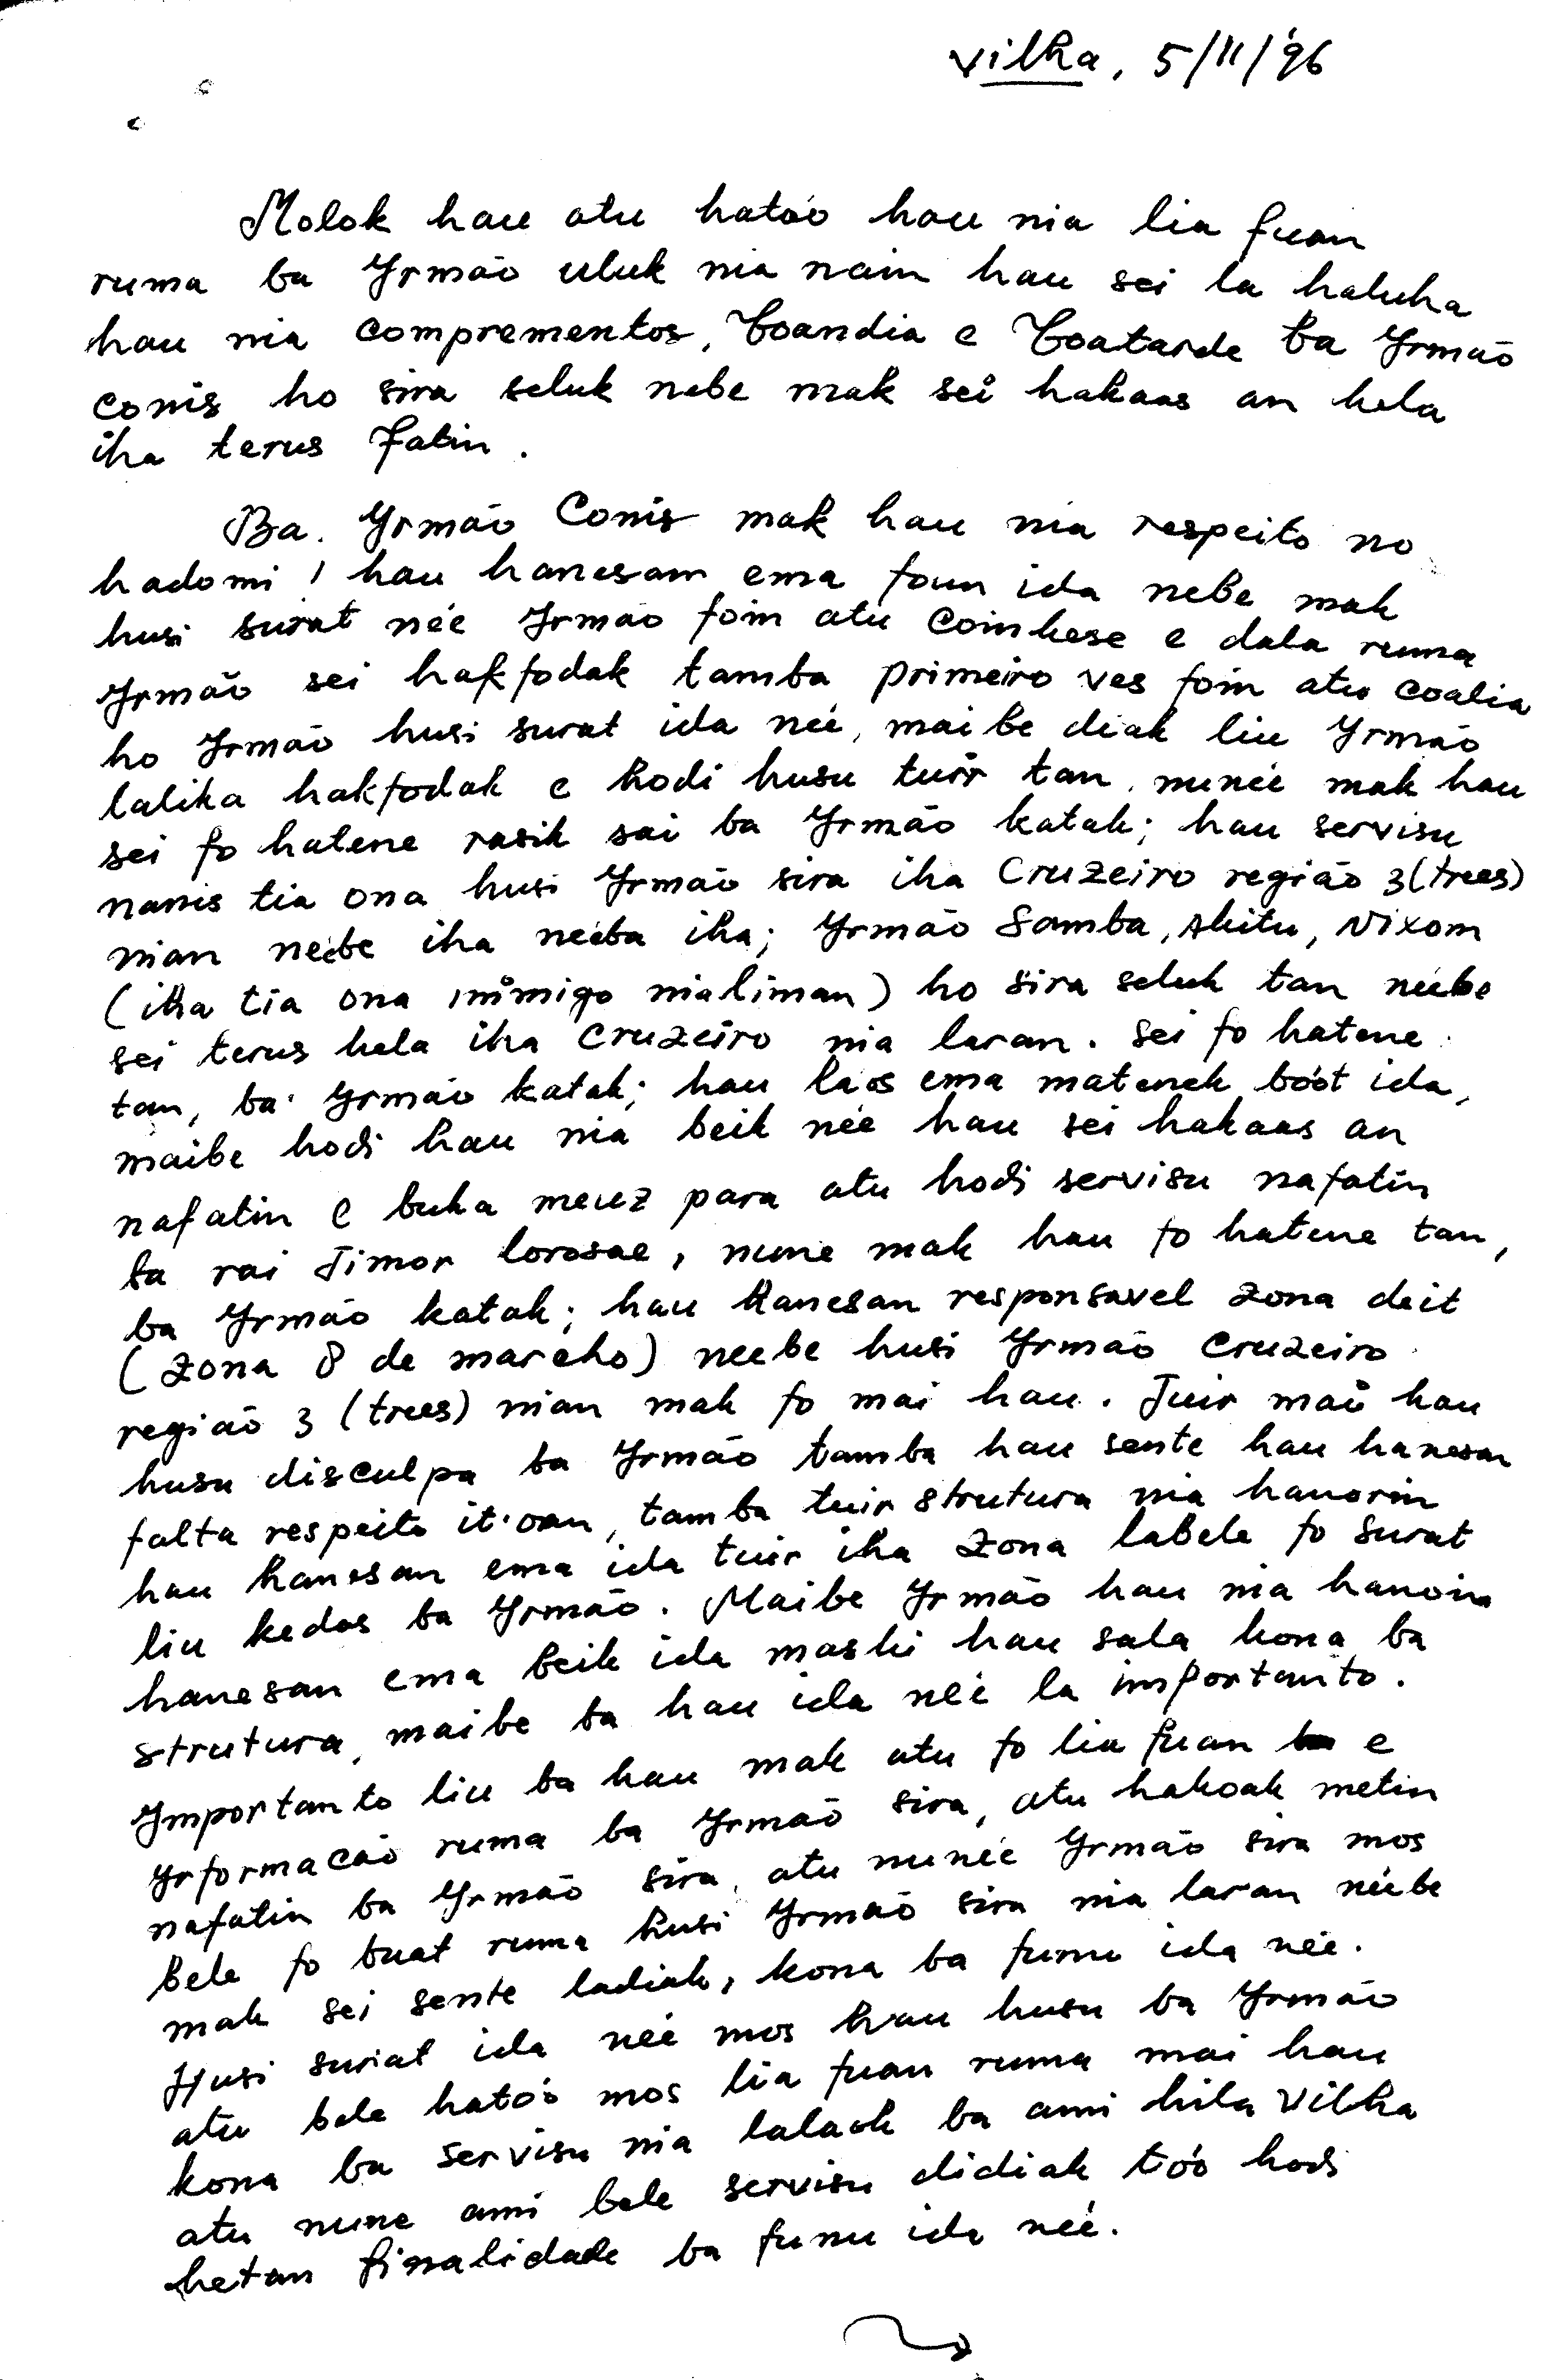 Vilka, 5/11/'96
Molok hau atu hatoó hau nia lia fuan
ruma ba Yrmão uluk nia nain hau sei la haluha
hau nia comprementos, Boandia e Boatarde ba Yrmão
Conis ho sira seluk nebe mak sei hakaas an hela
iha terus fatin.
Ba. Yrmão Conis mak hau nia respeito no
hadomi! hau hanesan ema foun ida nebe mak
husi surat neé Yrmão foin atu Coinhese e dala ruma
Yrmão sei hakfodak tamba primeiro ves foin atu coalia
ho Yrmão husi surat ida neé, maibe diak liu Yrmão
lalika hakfodak e hodi husu tuir tan, nuneé mak hau
sei fo hatene rasik sai ba Yrmão katak; hau servisu
nanis tia ona husi Yrmão sira iha Cruzeiro região 3 (trees)
nian neébe iha neéba iha; Yrmão Samba, Akitu, Nixom
(iha tia ona inimigo nia liman) ho sira seluk tan neébe
sei terus hela iha Cruzeiro nia laran. Sei fo hatene
tan, ba Yrmão katak; hau laos ema matenek boót ida,
maibe hodi hau nia beik neé hau sei hakaas an
nafatin e buka meuz para atu hodi servisu nafatin
ba rai Timor lorosae, nune mak hau fo hatene tan,
ba Yrmão katak; hau hanesan responsavel zona deit
(zona 8 de marcho) neebe husi Yrmão Cruzeiro
região 3 (trees) nian mak fo mai hau. Tuir mai hau
husu disculpa ba Yrmão tamba hau sente hau hanesan
falta respeito it.oan, tamba tuir strutura nia hanorin
hau hanesan ema ida tuir iha zona labele fo surat
liu kedas ba Yrmão. Maibe Yrmão hau nia hanoin
hanesan ema beik ida maski hau sala kona ba
strutura, maibe ba hau ida neé la importanto.
Ymportanto liu ba hau mak atu fo lia fuan e
Yrformacão ruma ba Yrmão sira, atu hakoak metin
nafatin ba Yrmão sira, atu nuneé Yrmão sira mos
bele fo buat ruma husi Yrmão sira nia laran neébe
mak sei sente ladiak, kona ba funu ida neé.
Husi surat ida neé mos hau husu ba Yrmão
atu bele hatoó mos lia fuan ruma mai hau
kona ba servisu nia lalaok ba ami hila Vilka
atu nune ami bele servisu didiak toó hodi
hetan finalidade ba funu ida neé.